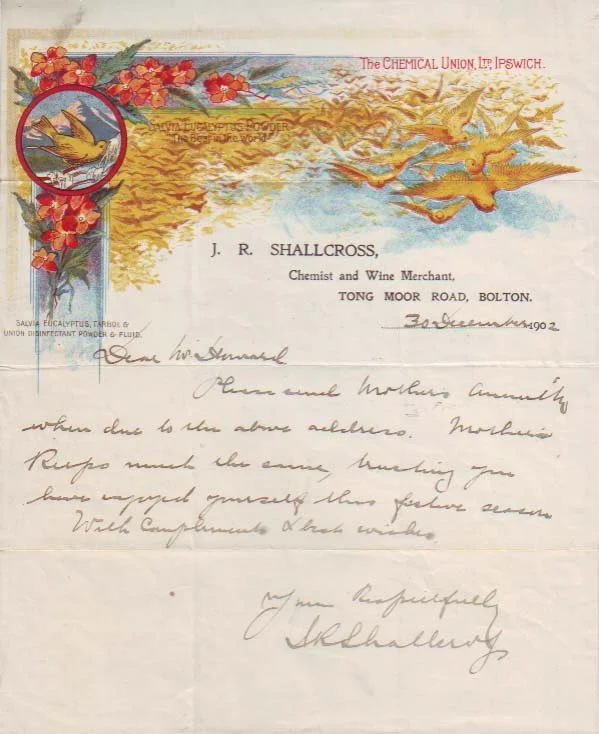 The CHEMICAL UNION, LTD, IPSWICH.
SALVIA EUCALYPTUS POWDER
The Best in the World
J. R. SHALLCROSS,
Chemist and Wine Merchant,
TONG MOOR ROAD, BOLTON.
SALVIA EUCALYPTUS, CARBOL &
UNION DISINFECTANT POWDER & FLUID.
30 December 1902
Dear Mr Howard
Please send Mothers Annuity
when due to the above address. Mother
Keeps much the same, trusting you
have enjoyed yourself this festive season
With Compliments & best wishes
Yours Respectfully
JRShallcross